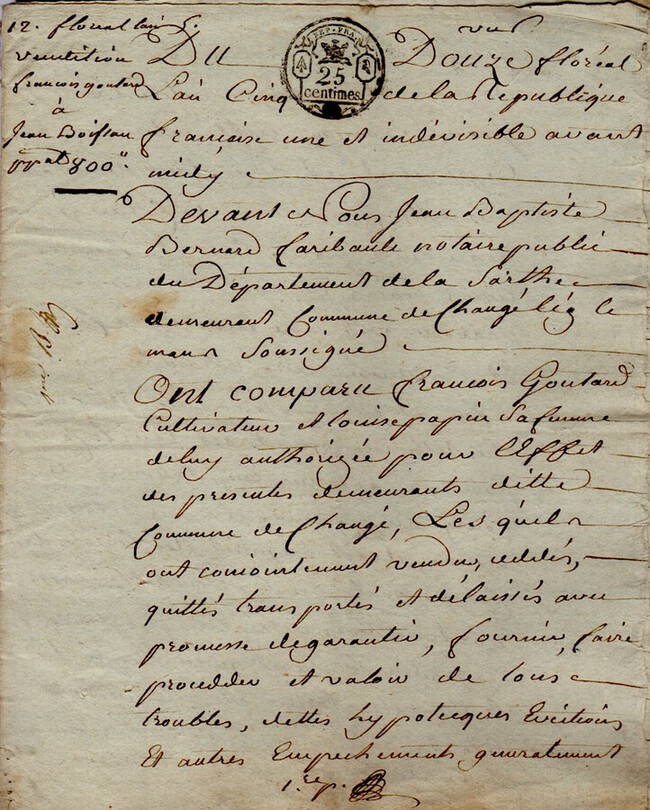 12. floreal l'an 5.
vendition
françois goutard
à
Jean Boissau
pp.al 800"
REP. FRA.
25
centimes
Du Douze floréal
L'an Cinq de la Republique
francoise une et indévisible avant
midy
Devant Nous Jean Baptiste
Bernard Caribault notaire public
du Département de la Sarthe
demeurant Commune de Changé léz le
mans Soussigné
Ont comparu francois Goutard
Cultivateur et Louise papin Sa femme
de luy authorizée pour L'Effet
des presentes demeurants ditte
Commune de Changé, Les quels
ont conjointement vendu, cddés,
quittés transportés et délaissés avec
promesse de garantir, fournir, faire
procedder et valoir de tous
troubles, dettes hypotecques Evictions
Et autres Empechements generalement
1.re p.